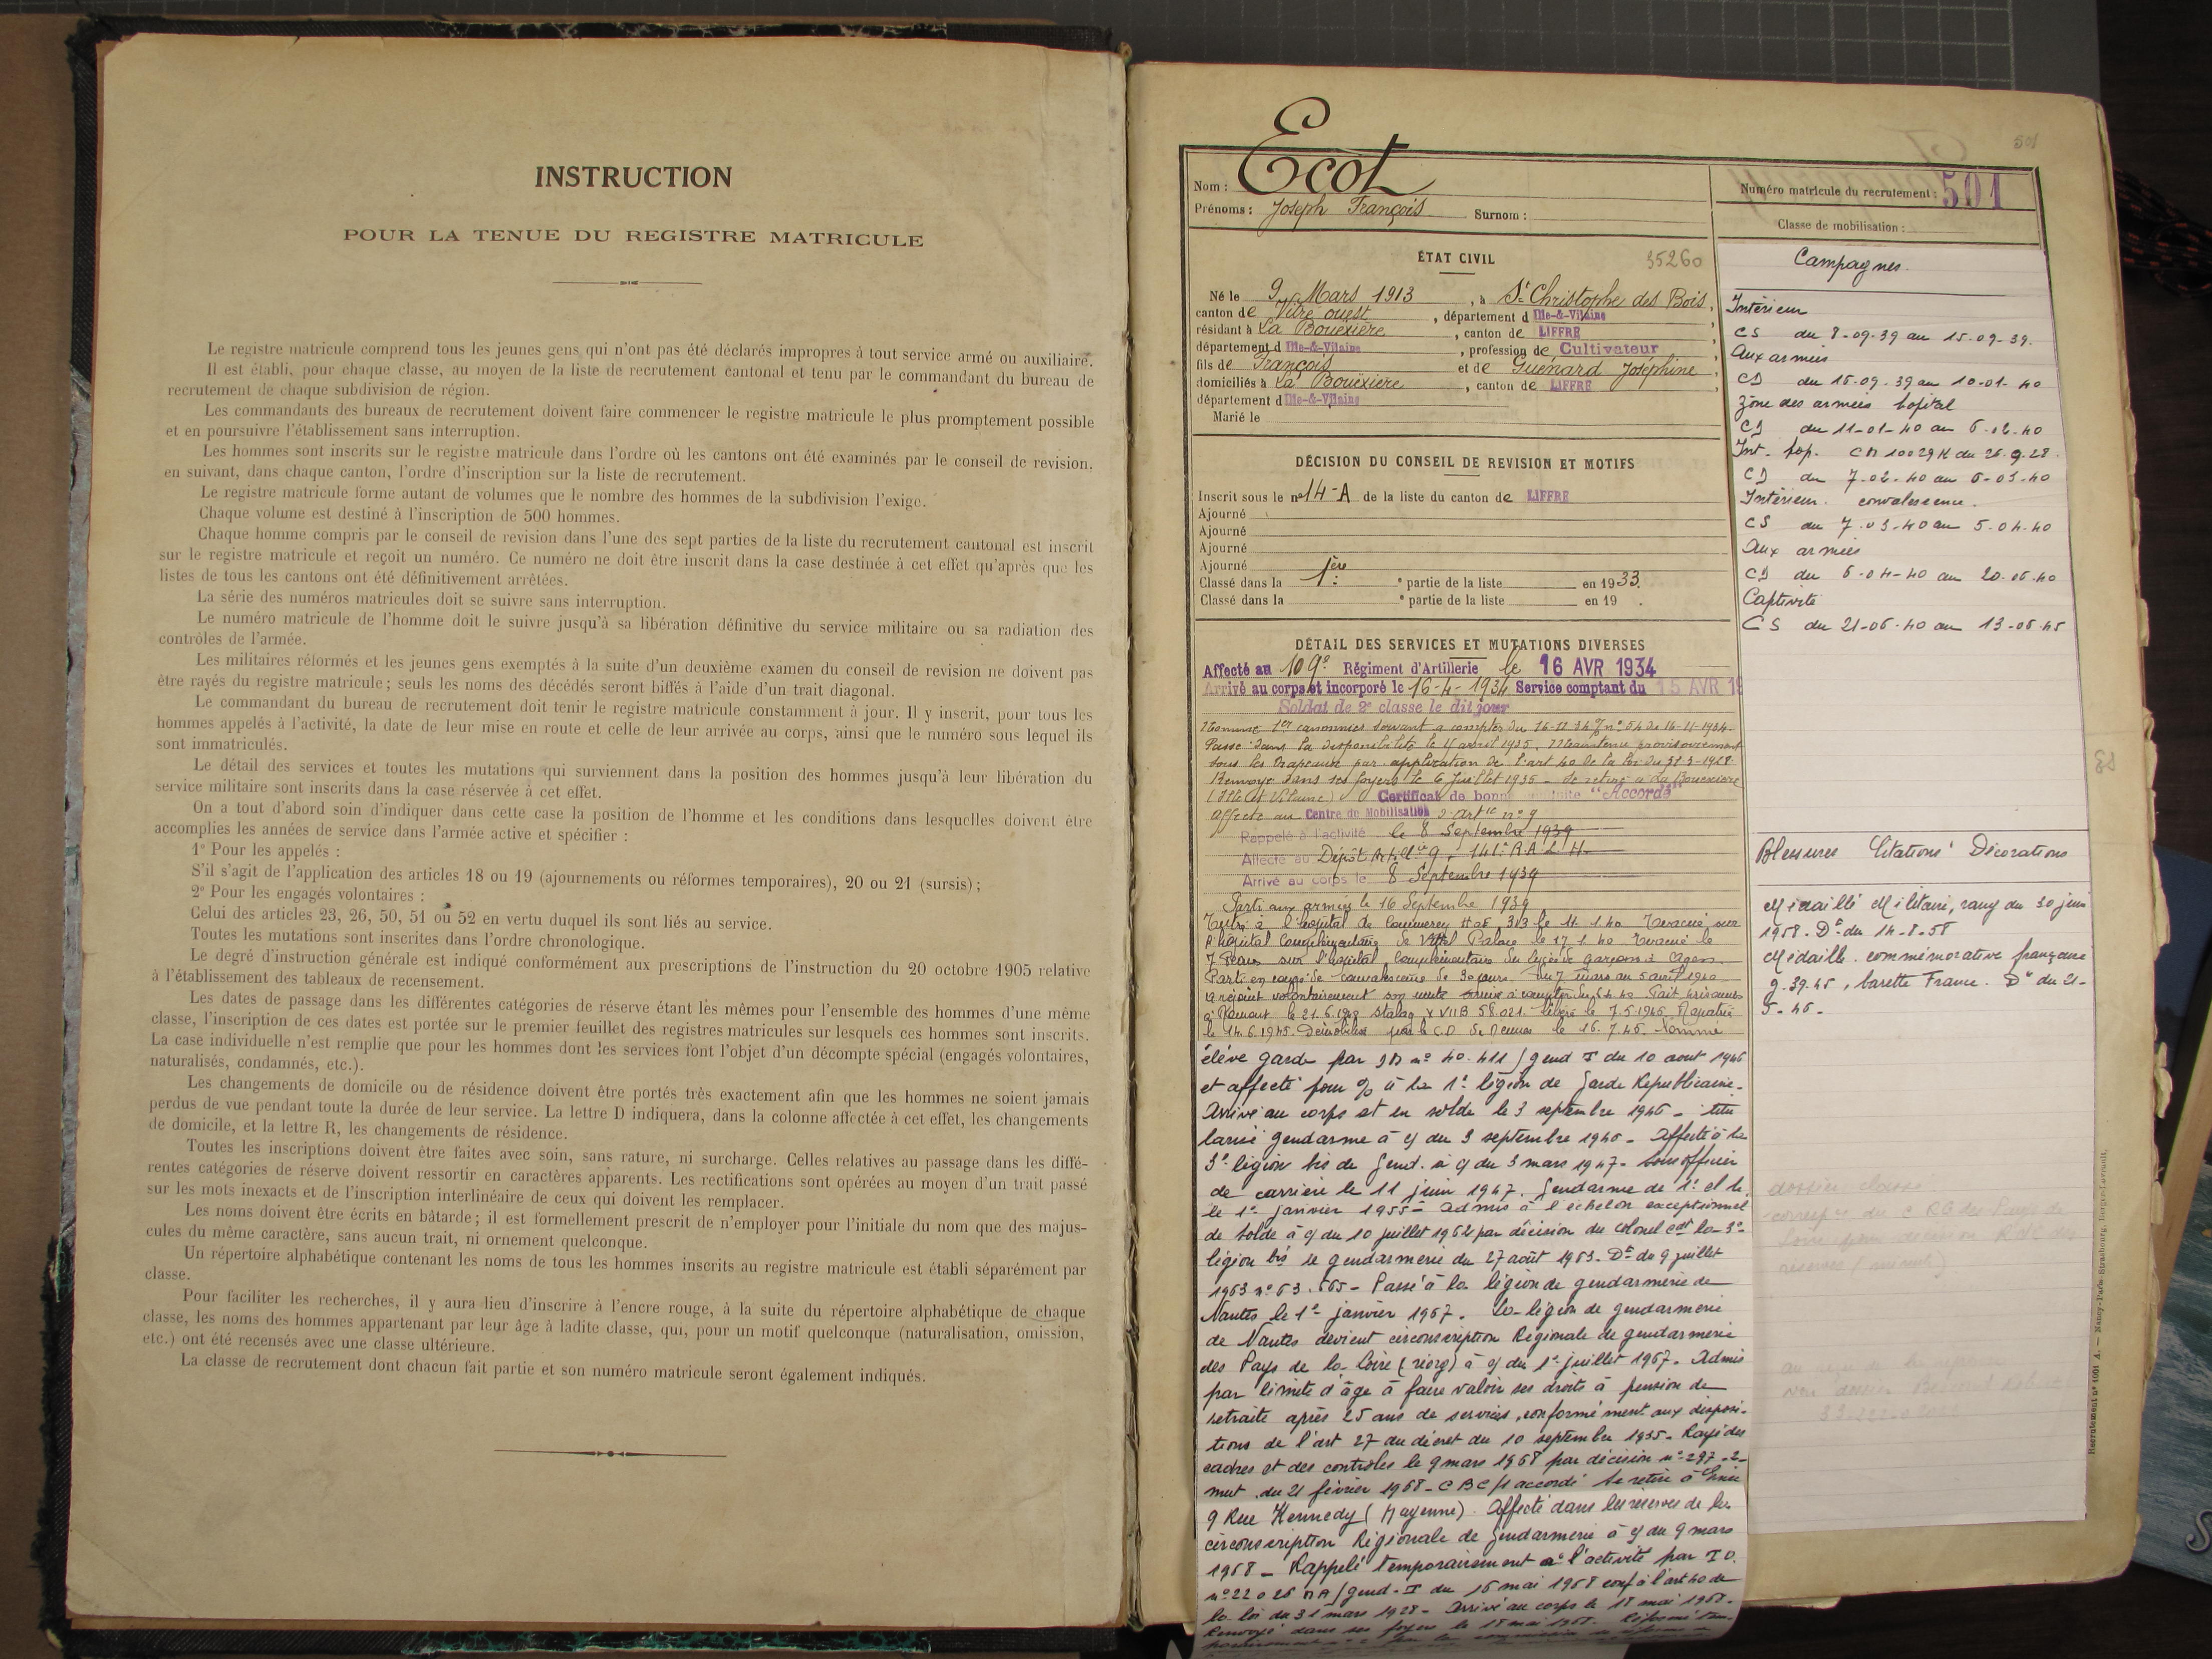 INSTRUCTION
POUR LA TENUE DU REGISTRE MATRICULE
Le registre matricule comprend tous les jeunes gens qui n'ont pas été déclarés impropres à tout service armé ou auxiliaire.
Il est établi, pour chaque classe, au moyen de la liste de recrutement cantonal et tenu par le commandant du bureau de
recrutement de chaque subdivision de région.
Les commandants des bureaux de recrutement doivent faire commencer le registre matricule le plus promptement possible
et en poursuivre l'établissement sans interruption.
Les hommes sont inscrits sur le registre matricule dans l'ordre où les cantons ont été examinés par le conseil de revision,
en suivant, dans chaque canton, l'ordre d'inscription sur la liste de recrutement.
Le registre matricule forme autant de volumes que le nombre des hommes de la subdivision l'exige.
Chaque volume est destiné à l'inscription de 500 hommes.
Chaque homme compris par le conseil de revision dans l'une des sept parties de la liste du recrutement cantonal est inscrit
sur le registre matricule et reçoit un numéro. Ce numéro ne doit être inscrit dans la case destinée à cet effet qu'après que les
listes de tous les cantons ont été définitivement arrêtées.
La série des numéros matricules doit se suivre sans interruption.
Le numéro matricule de l'homme doit le suivre jusqu'à sa libération définitive du service militaire ou sa radiation des
contrôles de l'armée.
Les militaires réformés et les jeunes gens exemptés à la suite d'un deuxième examen du conseil de revision ne doivent pas
être rayés du registre matricule; seuls les noms des décédés seront biffés à l'aide d'un trait diagonal.
Le commandant du bureau de recrutement doit tenir le registre matricule constamment à jour. Il y inscrit, pour tous les
hommes appelés à l'activité, la date de leur mise en route et celle de leur arrivée au corps, ainsi que le numéro sous lequel ils
sont immatriculés.
Le détail des services et toutes les mutations qui surviennent dans la position des hommes jusqu'à leur libération du
service militaire sont inscrits dans la case réservée à cet effet.
On a tout d'abord soin d'indiquer dans cette case la position de l'homme et les conditions dans lesquelles doivent être
accomplies les années de service dans l'armée active et spécifier :
1° Pour les appelés :
S'il s'agit de l'application des articles 18 ou 19 (ajournements ou réformes temporaires), 20 ou 21 (sursis);
2° Pour les engagés volontaires :
Celui des articles 23, 26, 50, 51 ou 52 en vertu duquel ils sont liés au service.
Toutes les mutations sont inscrites dans l'ordre chronologique.
Le degré d'instruction générale est indiqué conformément aux prescriptions de l'instruction du 20 octobre 1905 relative
à l'établissement des tableaux de recensement.
Les dates de passage dans les différentes catégories de réserve étant les mêmes pour l'ensemble des hommes d'une même
classe, l'inscription de ces dates est portée sur le premier feuillet des registres matricules sur lesquels ces hommes sont inscrits.
La case individuelle n'est remplie que pour les hommes dont les services font l'objet d'un décompte spécial (engagés volontaires,
naturalisés, condamnés, etc.).
Les changements de domicile ou de résidence doivent être portés très exactement afin que les hommes ne soient jamais
perdus de vue pendant toute la durée de leur service. La lettre D indiquera, dans la colonne affectée à cet effet, les changements
de domicile, et la lettre R, les changements de résidence.
Toutes les inscriptions doivent être faites avec soin, sans rature, ni surcharge. Celles relatives au passage dans les diffé-
rentes catégories de réserve doivent ressortir en caractères apparents. Les rectifications sont opérées au moyen d'un trait passé
sur les mots inexacts et de l'inscription interlinéaire de ceux qui doivent les remplacer.
Les noms doivent être écrits en bâtarde; il est formellement prescrit de n'employer pour l'initiale du nom que des majus-
cules du même caractère, sans aucun trait, ni ornement quelconque.
Un répertoire alphabétique contenant les noms de tous les hommes inscrits au registre matricule est établi séparément par
classe.
Pour faciliter les recherches, il y aura lieu d'inscrire à l'encre rouge, à la suite du répertoire alphabétique de chaque
classe, les noms des hommes appartenant par leur âge à ladite classe, qui, pour un motif quelconque (naturalisation, omission,
etc.) ont été recensés avec une classe ultérieure.
La classe de recrutement dont chacun fait partie et son numéro matricule seront également indiqués.
501
Nom : Ecot
Prénoms : Joseph François Surnom :
Numéro matricule du recrutement : 501
Classe de mobilisation :
ÉTAT CIVIL 35260
Né le 9 Mars 1913, à St Christophe des Bois,
canton de Vitré ouest, département d Ille-&-Vilaine
résidant à La Bouëxière, canton de LIFFRÉ
département d Ille-&-Vilaine, profession de Cultivateur
fils de François et de Guénard Joséphine,
domiciliés à La Bouëxière, canton de LIFFRÉ
département d Ille-&-Vilaine
Marié le
DÉCISION DU CONSEIL DE REVISION ET MOTIFS
Inscrit sous le n° 14-A de la liste du canton de LIFFRÉ
Ajourné
Ajourné
Ajourné
Ajourné
Classé dans la 1ère ° partie de la liste en 1933.
Classé dans la ° partie de la liste en 19 .
DÉTAIL DES SERVICES ET MUTATIONS DIVERSES
Affecté au 109e Régiment d'Artillerie le 16 AVR 1934
Arrivé au corps et incorporé le 16-4-1934 Service comptant du 15 AVR 19
Soldat de 2e classe le dit jour
Nommé 1er canonnier servant à compter du 16-11-34 n° 54 du 16-11-1934.
Passé dans la disponibilité le 15 avril 1935. Maintenu provisoirement
sous les drapeaux par application de l'art 40 de la loi du 31-3-1928
Renvoyé dans ses foyers le 6 Juillet 1935 - Se retire à La Bouexière
(Ille et Vilaine) Certificat de bonne conduite "Accordé"
Affecté au Centre de Mobilisation d'artie n° 9
Rappelé à l'activité le 8 Septembre 1939
Affecté au Dépôt Artie 9, 141e R A L H
Arrivé au corps le 8 Septembre 1939
Parti aux armées le 16 Septembre 1939
Entré à l'hôpital de Commercy 313 le 11.1.40 Evacué sur
l'hôpital Complémentaire de Vittel Palace le 17.1.40 Evacué le
7 sur l'hôpital Complémentaire du lycée de garçons à Agen.
Parti en congé de convalescence de 30 jours du 7 mars au 5 avril 1940
a rejoint volontairement son unité Fait prisonnier
à le 21.6.1940 Stalag XVII B 58.021 libéré le 7.5.1945 Rapatrié
le 14.6.1945. Démobilisé par le C.D de Rennes le 16.7.45. Nommé
élève garde par DM n° 40.411/gend T du 10 août 1946
et affecté pour % à la 1e légion de Garde Républicaine-
Arrivé au corps et en solde le 3 septembre 1946 - titu
larisé gendarme à c/ du 3 septembre 1946 - Affecté à la
3e légion bis de Gend. à c/ du 3 mars 1947- Sous officier
de carrière le 11 juin 1947. Gendarme de 1e cl le
le 1er janvier 1955 - admis à l'échelon exceptionnel
de solde à c/ du 10 juillet 1962 par décision du colonel cdt la 3e
légion bis de gendarmerie du 27 août 1963- De du 9 juillet
1963 n° 63.665 - Passé à la légion de gendarmerie de
Nantes le 1er janvier 1967. la légion de gendarmerie
de Nantes devient circonscription Régionale de gendarmerie
des Pays de la Loire (réorg) à c/ du 1er juillet 1967. Admis
par limite d'âge à faire valoir ses droits à pension de
retraite après 25 ans de services, conformément aux disposi-
tions de l'art 27 du décret du 10 septembre 1935- Rayé des
cadres et des contrôles le 9 mars 1968 par décision n° 297-2-
mut du 21 février 1968 - C B C /1 accordé Se retire à Ernée
9 Rue Kennedy (Mayenne). Affecté dans les réserves de la
circonscription Régionale de Gendarmerie à c/ du 9 mars
1968 - Rappelé temporairement à l'activité par I O.
n° 22026 MA/gend-T du 16 mai 1968 conf à l'art 40 de
la loi du 31 mars 1928 - Arrivé au corps le 18 mai 1968.
Renvoyé dans ses foyers le 18 mai 1968.
Campagnes
Intérieur
CS du 8-09-39 au 15-09-39.
Aux armées
CD du 16-09-39 au 10-01-40
Zone des armées hôpital
CD du 11-01-40 au 6-02-40
Int- hop. CM 10029K du 26-9-28
CD du 7-02-40 au 6-03-40
Intérieur. convalescence.
CS du 7-03-40 au 5-04-40
Aux armées
CD du 6-04-40 au 20-06-40
Captivité
CS du 21-06-40 au 13-06-45
Blessures Citations Décorations
Médaillé Militaire, rang du 30 juin
1958. Dt du 14-8-58
Médaille commémorative française
g. 39-45, barette France. Dt du 21-
5-46-
dossier classé
Recrutement n° 1601 A. — Nancy-Paris-Strasbourg, Berger-Levrault.